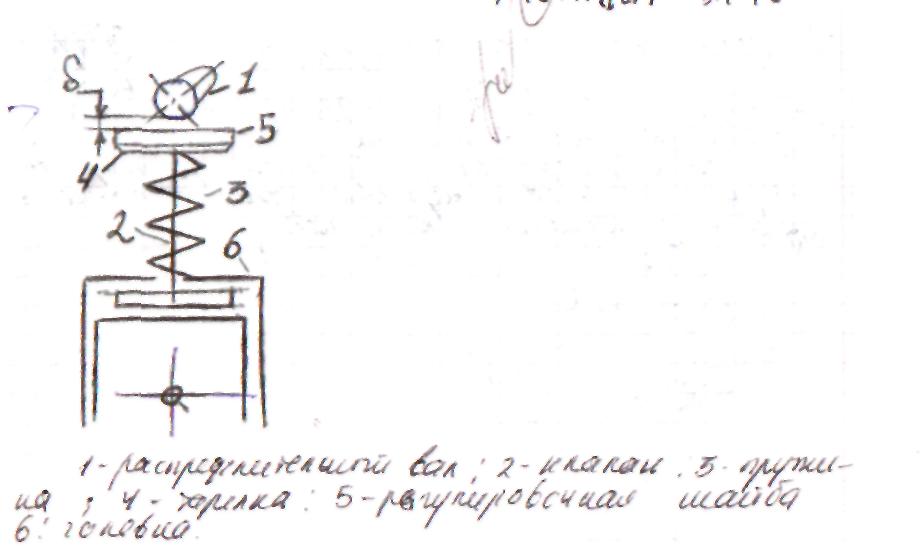 δ
1
5
4
3
2
6
1- распределительный вал; 2- клапан; 3- пружи-
на; 4- тарелка; 5- регулировочная шайба
6: головка.